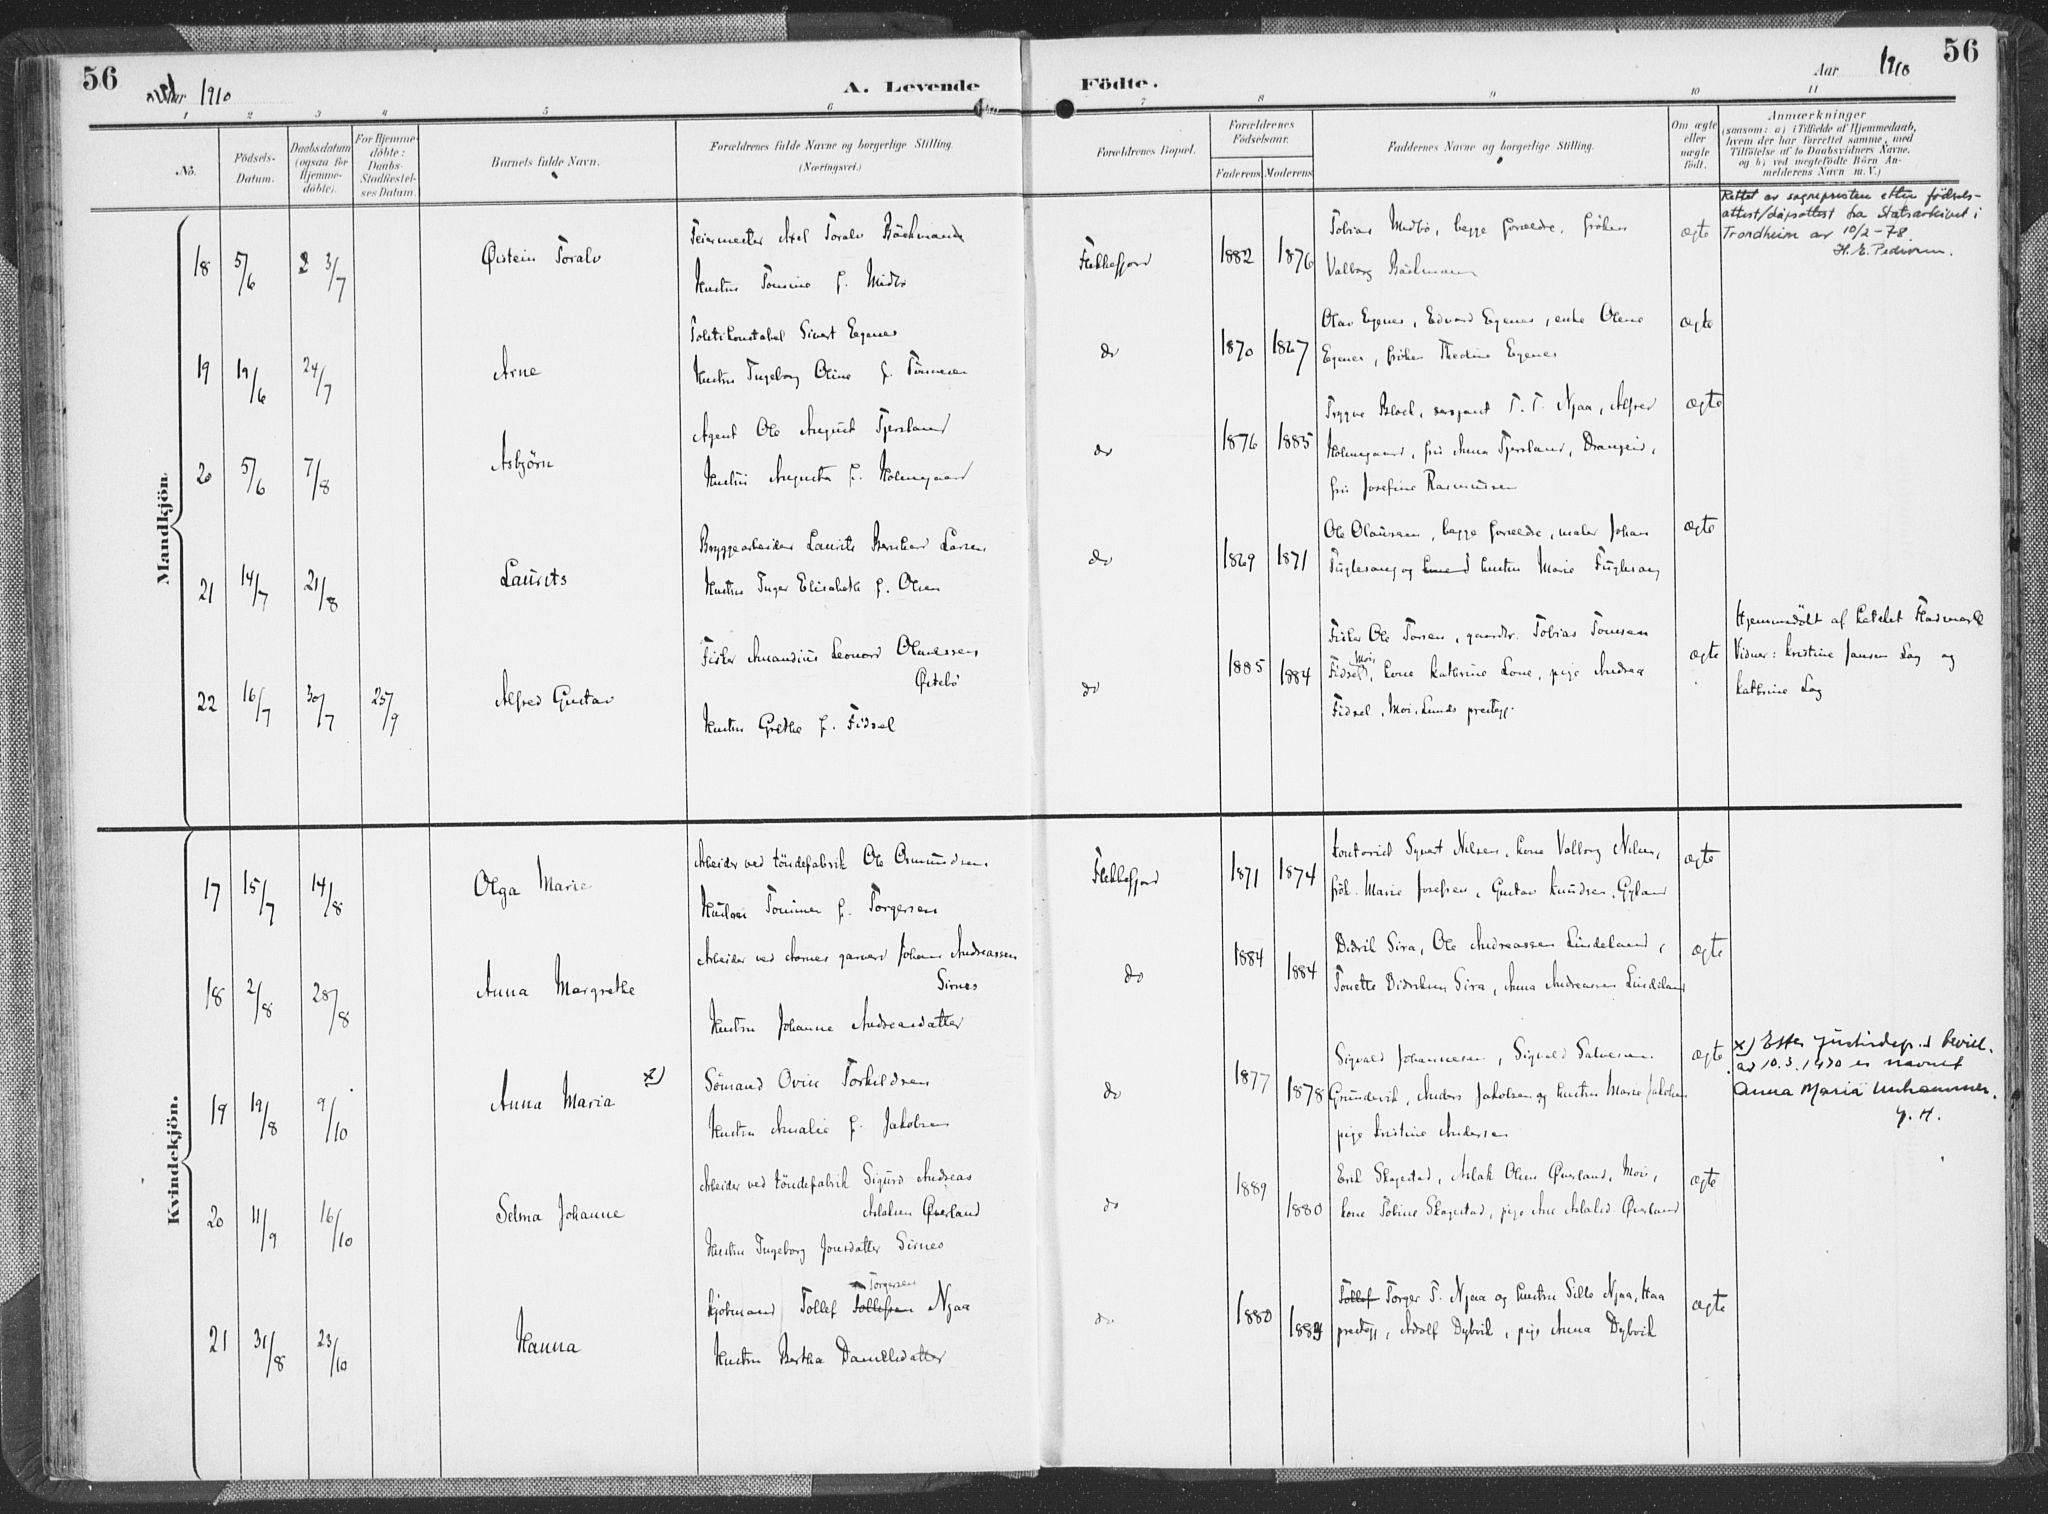 56
Aar 1910
A. Levende Födte.
Aar 1910
56
1 2 3 4 5 6 7 8 9 10 11
No.
Födsels-
Datum.
Daabsdatum
(ogsaa for
Hjemme-
döbte).
For Hjemme-
döbte:
Daabs-
Stadfæstel-
ses Datum.
Barnets fulde Navn.
Forældrenes fulde Navne og borgerlige Stilling.
(Næringsvei.)
Forældrenes Bopæl.
Forældrenes
Födselsaar.
Faderens Moderens
Faddernes Navne og borgerlige Stilling.
Om ægte
eller
uægte
födt.
Anmærkninger
(saasom: a) i Tilfælde af Hjemmedaab,
hvem der har forrettet samme, med
Tilföielse af to Daabsvidners Navne,
og b) ved uægtefödte Börn An-
melderens Navn m.V.)
Mandkjön.
18 5/6 3/7 Øistein Toralv
Feiermester Axel Toralv Bäckmand
Hustru Tomine f. Midbø
Flekkefjord 1882 1876
Tobias Midbö, begge forældre, frøken
Valborg Bäckmann
ægte
Rettet av sognepresten etter födsels-
attest/dåpsattest fra Statsarkivet i
Trondheim av 10/2-78
H. E. Pedersen.
19 19/6 24/7 Arne
Politikonstabel Sivert Egenes
Hustru Ingeborg Oline f. Tönnesen
do 1870 1867
Olav Egenes, Edvard Egenes, enke Olene
Egenes, fröken Thedine Egenes
ægte
20 5/6 7/8 Asbjörn
Agent Ole August Tjersland
Hustru Augusta f. Holmegaard
do 1876 1885
Trygve Block, sersjant T. T. Njaa, Alfred
Holmegaard, fru Anna Tjersland, Drangeid,
fru Josefine Rasmussen
ægte
21 14/7 21/8 Laurits
Bryggearbeider Laurits Bernhard Larsen
Hustru Inger Elisabeth f. Olsen
do 1869 1871
Ole Olaussen, begge forældre, maler Johan
Fuglesang og hustru Marie Fuglesang
ægte
22 16/7 30/7 25/9 Alfred Gustav
Fisker Amandius Leonard Olaussen
Østebö
Hustru Grethe f. Fidsel
do 1885 1884
Fisker Ole Torsen, gaardbr. Tobias Tomsen
Fidsel, Moi, kone Kathrine Lone, pige Andrea
Fidsel, Moi, Lunds prestegj.
ægte
Hjemmedöbt af kateket
Vidner: Kristine Jansen Log og
Kathrine Log
Kvindekjön.
17 15/7 14/8 Olga Marie
Arbeider ved töndefabrik Ole Osmundsen
Hustru Tomine f. Torgersen
Flekkefjord 1871 1874
Kontorist Syvert Nilsen, kone Valborg Nilsen,
frök. Marie Josefsen, Gustav Knudsen, Gyland
ægte
18 2/8 28/8 Anna Margrethe
Arbeider ved Aarnes garveri Johan Andreassen
Sirnes
Hustru Johanne Andreasdatter
do 1884 1884
Didrik Sira, Ole Andreassen Lindeland,
Tonette Didriksen Sira, Anna Andreassen Lindeland
ægte
19 19/8 9/10 Anna Maria x)
Sömand Ovin Torkildsen
Hustru Amalie f. Jakobsen
do 1877 1878
Sigvald Johannesen, Sigvald Salvesen
Grundevik, Anders Jakobsen og hustru Marie Jakobsen
pige Kristine Andersen
ægte
x) Efter Justisdep.s bevill.
av 10.3.1930 er navnet
Anna Maria Unhammer.
20 11/9 16/10 Selma Johanne
Arbeider ved töndefabrik Sigurd Andreas
Aslaksen Øverland
Hustru Ingeborg Jonsdatter Sirnes
do 1889 1880
Erik Skagestad, Aslak Olsen Øverland, Moi,
kone Tobine Skagestad, pige Ane Aslaksd. Øverland
ægte
21 31/8 23/10 Hanna
Torgersen
Kjöbmand Tollef Tollefsen Njaa
Hustru Bertha Danielsdatter
do 1880 1884
Tollef Torger T. Njaa og hustru Sille Njaa, Haa
prestegj, Adolf Dybvik, pige Anna Dybvik
ægte